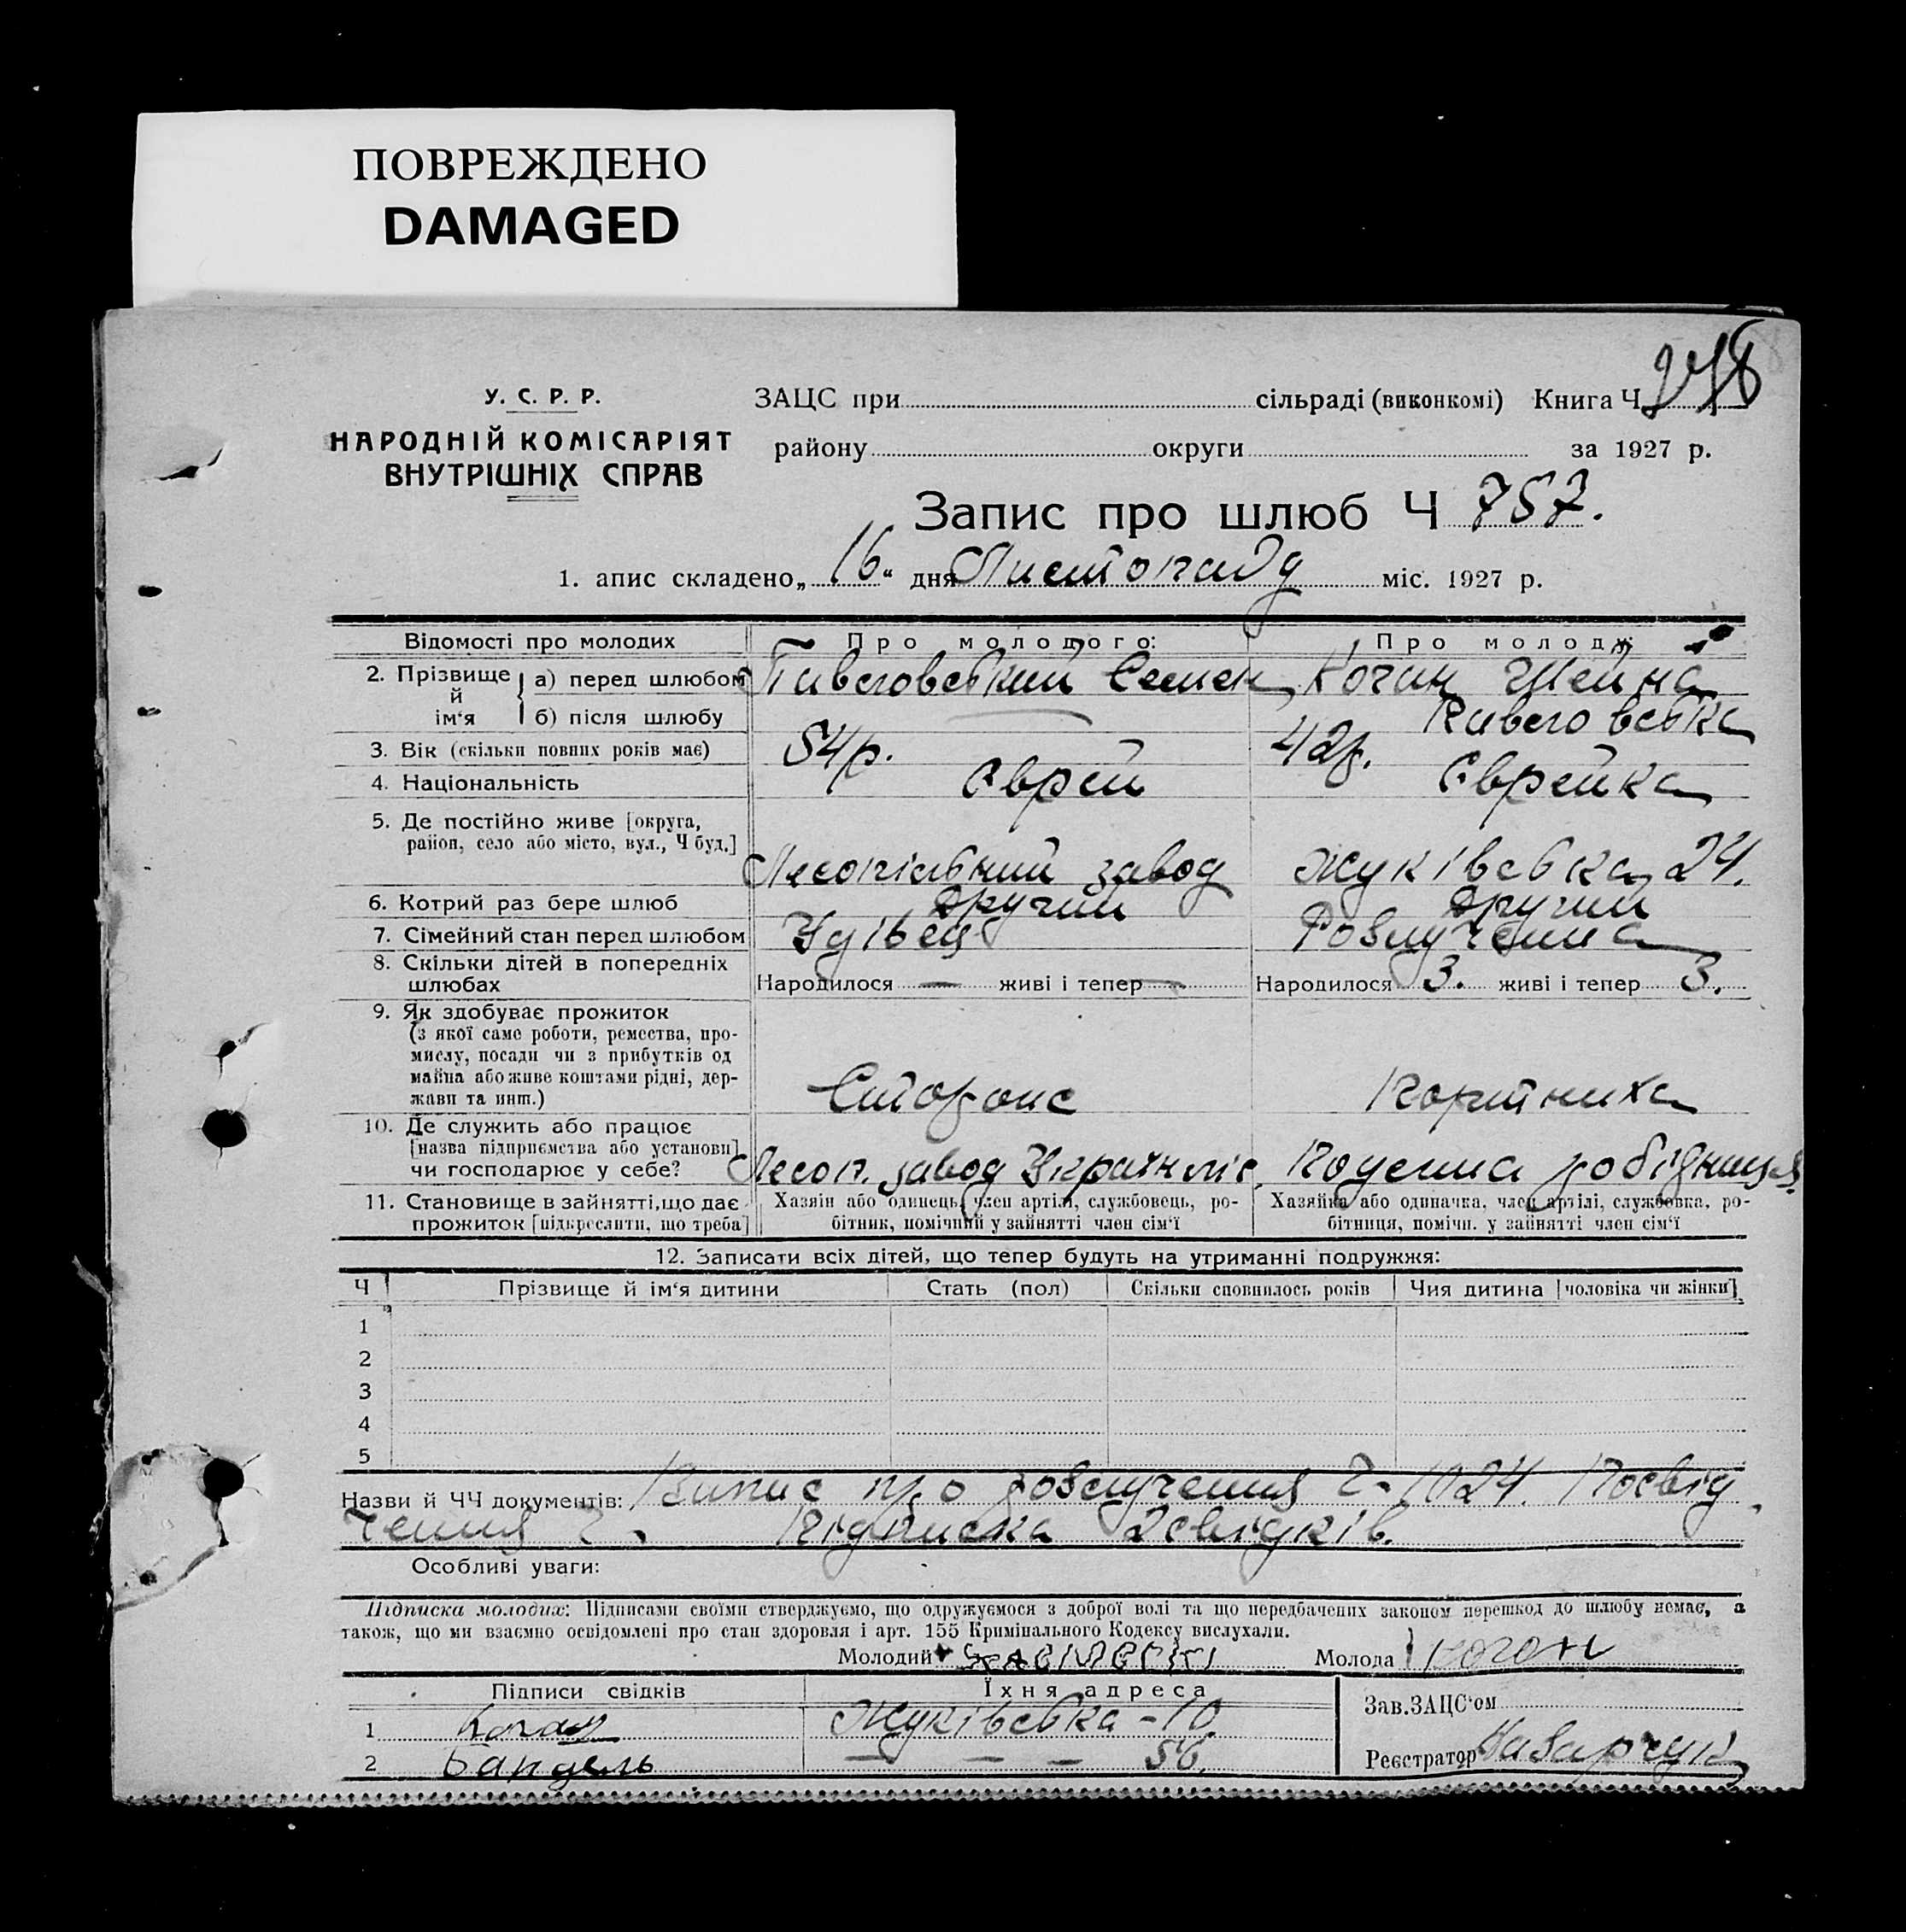 ПОВРЕЖДЕНО
DAMAGED
У. С. Р. Р.
НАРОДНІЙ КОМІСАРІЯТ
ВНУТРІШНІХ СПРАВ
ЗАЦС при сільраді (виконкомі) Книга Ч
району округи за 1927 р.
Запис про шлюб Ч 757.
1. апис складено „16“ дня Листопаду міс. 1927 р.
Відомості про молодих
Про молодого:
Про молоду:
2. Прізвище й ім‘я
а) перед шлюбом
Семен
Коган Шейна
б) після шлюбу
3. Вік (скільки повних років має)
54р.
42р.
4. Національність
Єврей
Єврейка
5. Де постійно живе [округа,
район, село або місто, вул., Ч буд.]
завод
Жуківська 24.
6. Котрий раз бере шлюб
Другий
Другий
7. Сімейний стан перед шлюбом
Удівец
Розлучена
8. Скільки дітей в попередніх
шлюбах
Народилося — живі і тепер —
Народилося 3. живі і тепер 3.
9. Як здобуває прожиток
(з якої саме роботи, ремества, про-
мислу, посади чи з прибутків од
майна або живе коштами рідні, дер-
жави та инш.)
Сторож
10. Де служить або працює
[назва підприємства або установи]
чи господарює у себе?
Лесоп. завод
робідниця
11. Становище в зайнятті, що дає
прожиток [підкреслити, що треба]
Хазяїн або одинець, член артілі, службовець, ро-
бітник, помічний у зайнятті член сім‘ї
Хазяйка або одиначка, член артілі, службовка, ро-
бітниця, помічн. у зайнятті член сім‘ї
12. Записати всіх дітей, що тепер будуть на утриманні подружжя:
Ч
Прізвище й ім‘я дитини
Стать (пол)
Скільки сповнилось років
Чия дитина [чоловіка чи жінки]
1
2
3
4
5
Назви й ЧЧ документів: Випис про розлучення Ч- 1024. Посвід
чення Ч Підписка 2 свідків.
Особливі уваги:
Підписка молодих: Підписами своїми стверджуємо, що одружуємося з доброї волі та що передбачених законом перешкод до шлюбу немає, а
також, що ми взаємно освідомлені про стан здоровля і арт. 155 Кримінального Кодексу вислухали.
Молодий
Молода Коган
Підписи свідків
Їхня адреса
Зав. ЗАЦС‘ом
1 Коган
Жуківська - 10
2 Бандель
— — — 56.
Реєстратор Назарчук